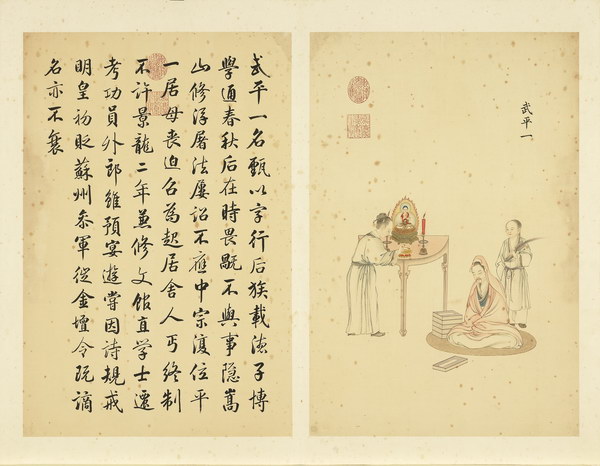 武平一
武平一名甄以字行后族載德子博
學通春秋后在時畏旤不與事隱嵩
山修浮屠法屢詔不應中宗復位平
一居母喪迫召為起居舍人丐終制
不許景龍二年兼修文館直學士遷
考功員外郎雖預宴遊嘗因詩規戒
明皇初貶蘇州參軍徙金壇令既謫
名亦不衰